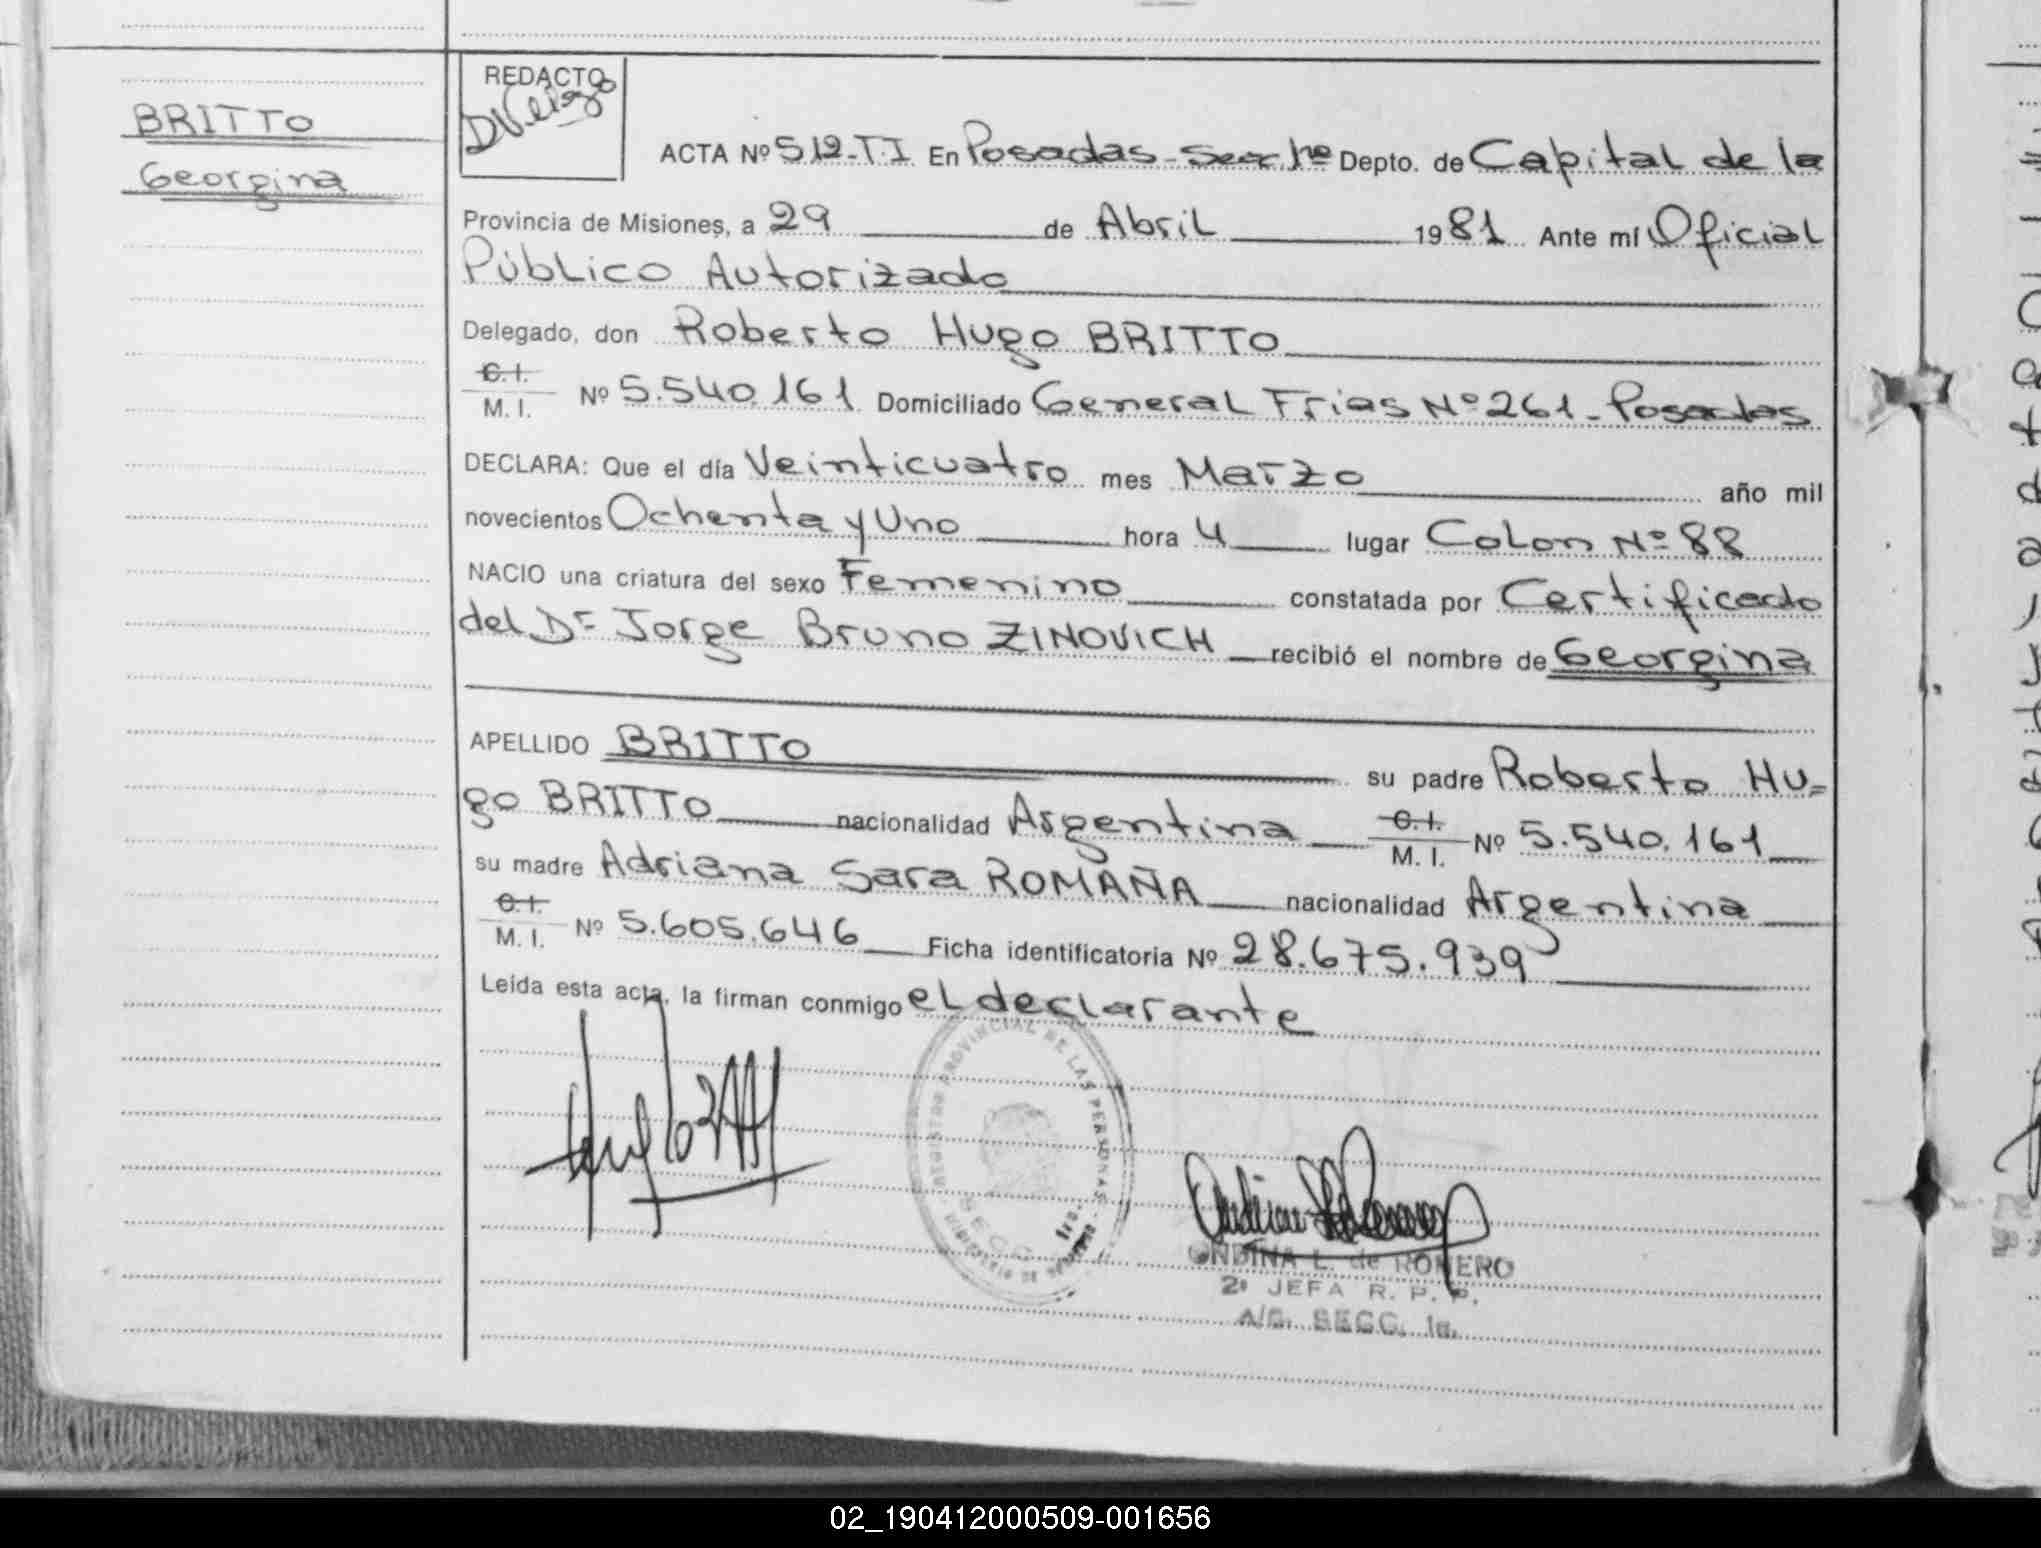 BRITTO
Georgina
REDACTO
DVelazo
ACTA Nº 512-T.I. En Posadas-Secc. 1ª Depto. de Capital de la
Provincia de Misiones, a 29 de Abril 1981 Ante mí Oficial
Público Autorizado
Delegado, don Roberto Hugo BRITTO
C.I.
M.I. Nº 5.540.161 Domiciliado General Frias Nº 261-Posadas
DECLARA: Que el día Veinticuatro mes Marzo año mil
novecientos Ochenta y Uno hora 4 lugar Colon Nº 88
NACIO una criatura del sexo Femenino constatada por Certificado
del Dr Jorge Bruno ZINOVICH recibió el nombre de Georgina
APELLIDO BRITTO su padre Roberto Hu=
go BRITTO nacionalidad Argentina C.I. M.I. Nº 5.540.161
su madre Adriana Sara ROMAÑA nacionalidad Argentina
C.I.
M.I. Nº 5.605.646 Ficha identificatoria Nº 28.675.939
Leída esta acta, la firman conmigo el declarante
REGISTRO PROVINCIAL DE LAS PERSONAS
MINISTERIO DE GOBIERNO
SECC.
ONDINA L. de ROMERO
2ª JEFA R. P. P.
A/C. SECC. 1a.
02_190412000509-001656